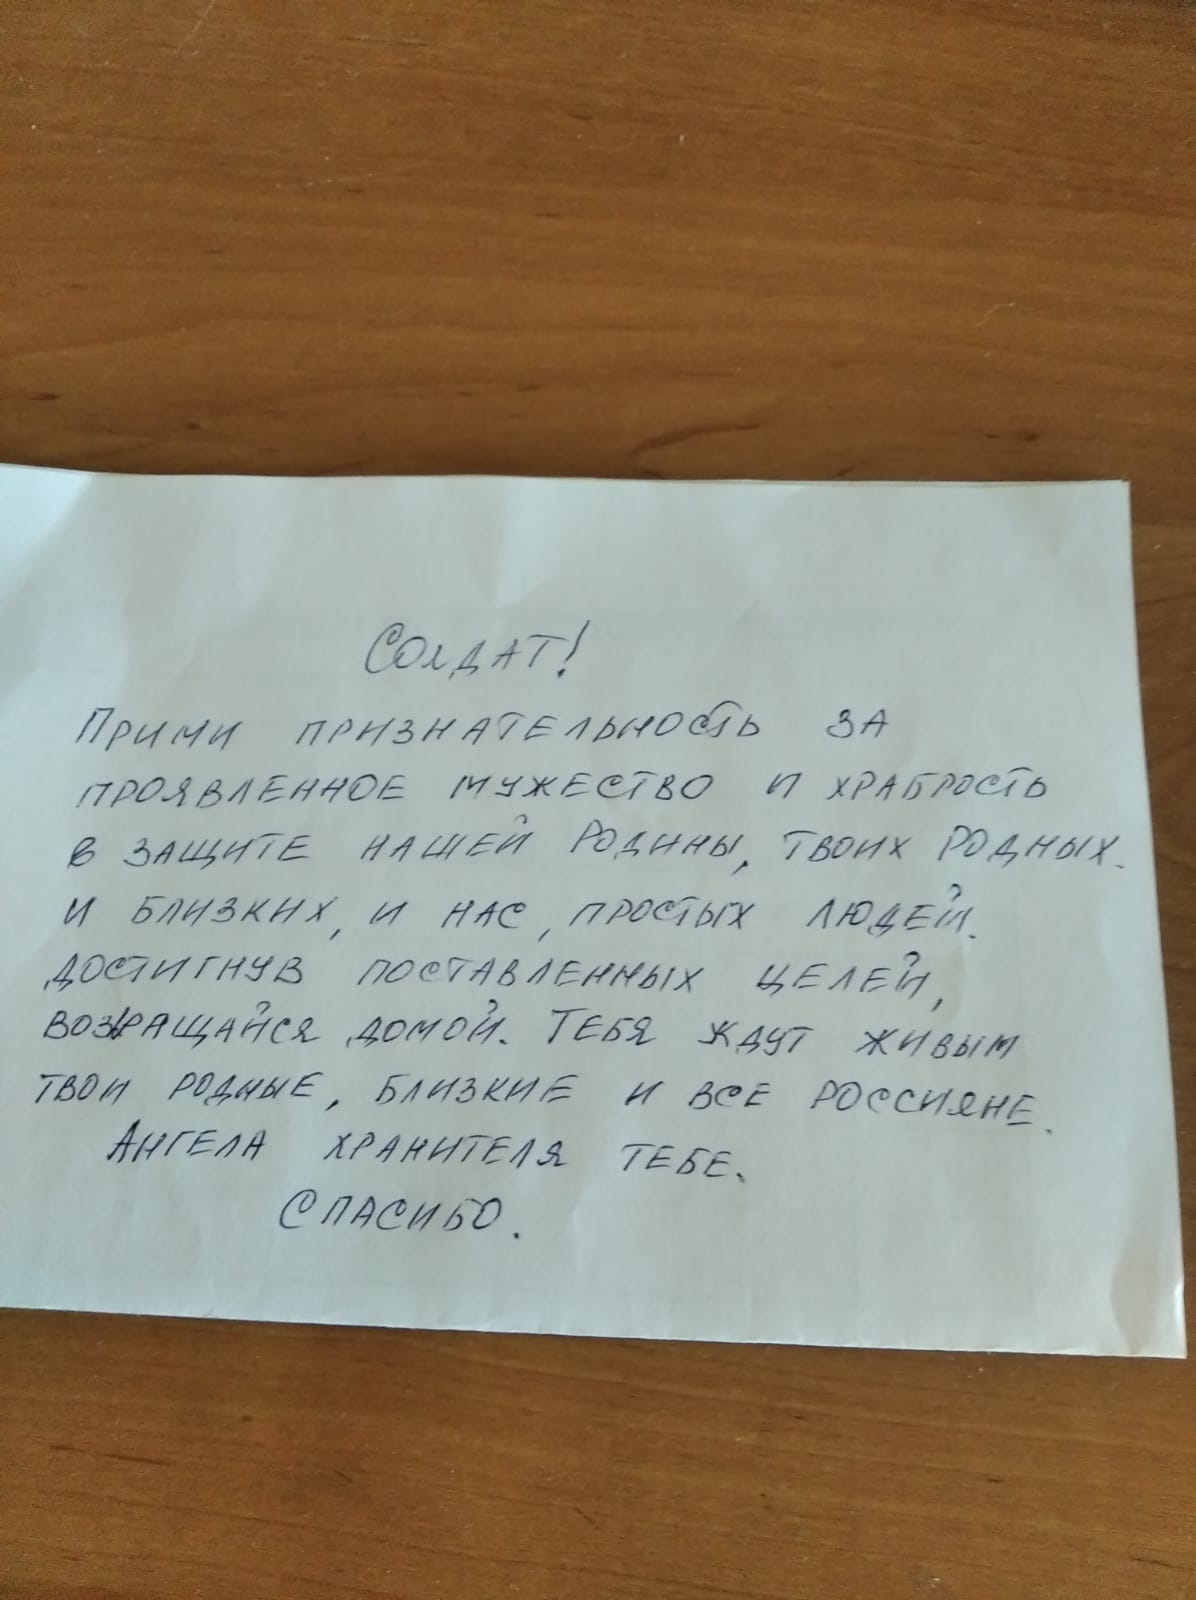 Солдат!
Прими признательность за
проявленное мужество и храбрость
в защите нашей Родины, твоих родных
и близких, и нас, простых людей.
Достигнув поставленных целей,
возвращайся домой. Тебя ждут живым
твои родные, близкие и все россияне.
Ангела хранителя тебе.
Спасибо.